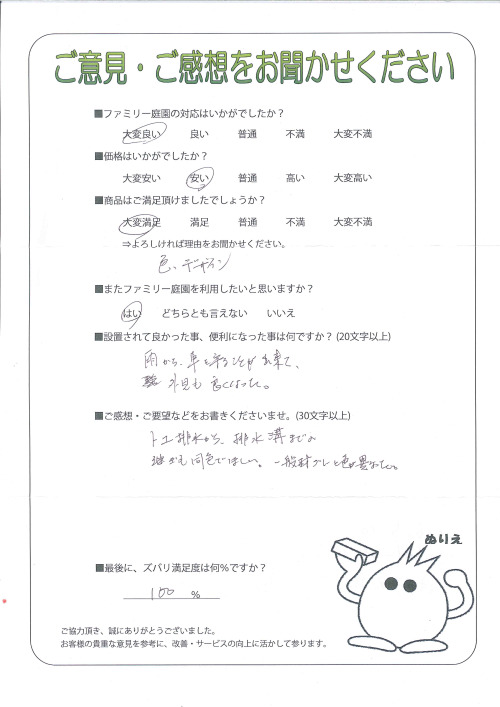 ご意見・ご感想をお聞かせください
■ファミリー庭園の対応はいかがでしたか?
大変良い 良い 普通 不満 大変不満
■価格はいかがでしたか?
大変安い 安い 普通 高い 大変高い
■商品はご満足頂けましたでしょうか?
大変満足 満足 普通 不満 大変不満
⇒よろしければ理由をお聞かせください。
色、デザイン
■またファミリー庭園を利用したいと思いますか?
はい どちらとも言えない いいえ
■設置されて良かった事、便利になった事は何ですか? (20文字以上)
雨から、車を守ることが出来て、
外見も良くなった。
■ご感想・ご要望などをお書きくださいませ。(30文字以上)
トユ排水から、排水溝までの
も同色でほしい。一般材 と色が異なった。
ぬりえ
■最後に、ズバリ満足度は何%ですか?
100 %
ご協力頂き、誠にありがとうございました。
お客様の貴重な意見を参考に、改善・サービスの向上に活かして参ります。